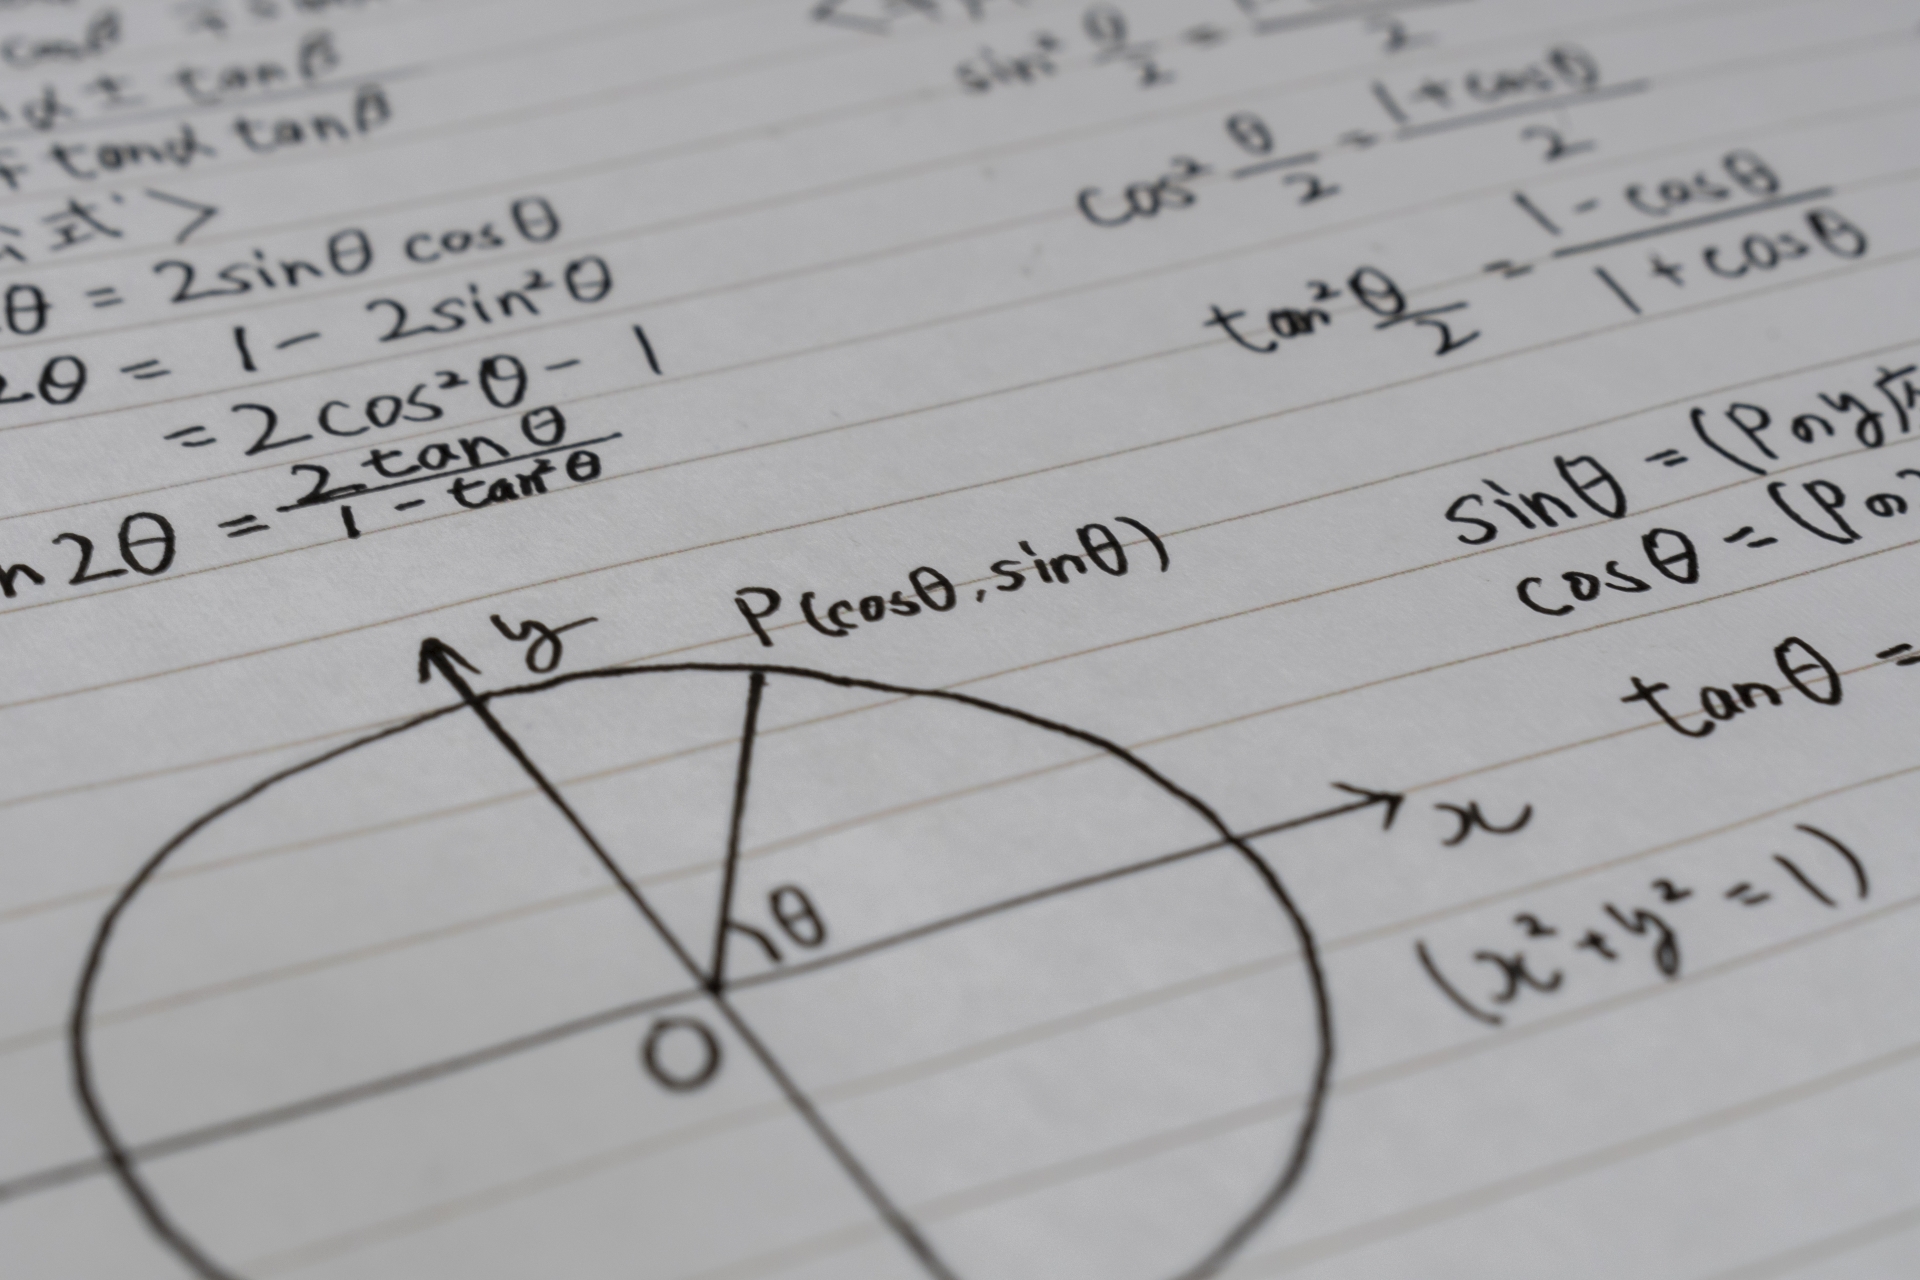 cosβ
α ± tanβ
∓ tanα tanβ
公式>
θ = 2sinθ cosθ
2θ = 1 - 2sin²θ
= 2cos²θ - 1
n2θ = 2tanθ / 1 - tan²θ
sin² θ/2 = / 2
cos² θ/2 = 1 + cosθ / 2
tan² θ/2 = 1 - cosθ / 1 + cosθ
sinθ = (Pのy座
cosθ = (Pの
tanθ =
y
P(cosθ, sinθ)
x
θ
O
(x² + y² = 1)